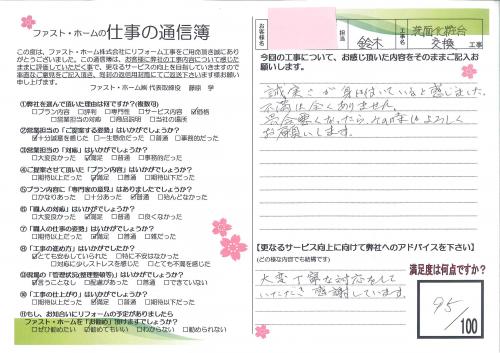 ファスト・ホームの仕事の通信簿
この度は、ファスト・ホーム株式会社にリフォーム工事をご用命頂き誠にあり
がとうございました。この通信簿は、お客様に弊社の工事内容について感じた
ままに評価していただく事で、更なるサービスの向上を目指していきますので
率直なご意見をご記入頂き、別封の返信用封筒にてご返送下さいます様お願い
申し上げます。
ファスト・ホーム㈱ 代表取締役 藤原 学
①弊社を選んで頂いた理由は何ですか?(複数可)
□プラン内容 □評判 □専門性 □サービス内容 ☑価格
□営業担当の対応 □商品説明 □当社の場所
②営業担当の「ご提案する姿勢」はいかがでしょうか?
☑十分誠意を感じた □一生懸命だった □普通 □事務的だった
③営業担当の「対応」はいかがでしょうか?
□大変良かった ☑満足 □普通 □事務的だった
④ご提案させて頂いた「プラン内容」はいかがでしょうか?
□期待以上だった ☑満足 □普通 □期待以下だった
⑤プラン内容に「専門家の意見」はありましたでしょうか?
□かなりあった □十分あった ☑普通 □殆んどなかった
⑥「職人の対応」はいかがでしょうか?
□大変良かった ☑満足 □普通 □良くなかった
⑦「職人の仕事の姿勢」はいかがでしょうか?
□期待以上だった ☑満足 □普通 □雑だった
⑧「工事の進め方」はいかがでしたか?
☑とても安心していられた □特に不安はなかった
□対応に少しストレスを感じた □とても不満を感じた
⑨現場の「管理状況(整理整頓等)」はいかがでしょうか?
☑言うことなし □配慮があった □普通 □できていない
⑩「工事の仕上がり」はいかがでしょうか?
□期待以上だった ☑満足 □普通 □期待以下だった
⑪もし、お知合いにリフォームの予定がありましたら
ファスト・ホームを「お勧め」頂けますでしょうか?
□ぜひ勧めたい ☑勧めてもいい □わからない □勧められない
お客様名
担当
鈴木
工事名
洗面化粧台
交換
工事
今回の工事について、お感じ頂いた内容をそのままご記入お
願いします。
誠実さが身に付いていると感じました。
不満は全くありません。
具合悪くなったら、その時はよろしく
お願いします。
【更なるサービス向上に向けて弊社へのアドバイスを下さい】
(どの様な内容でも結構です)
大変丁寧な対応をして
いただき感謝しています。
満足度は何点ですか?
95/100